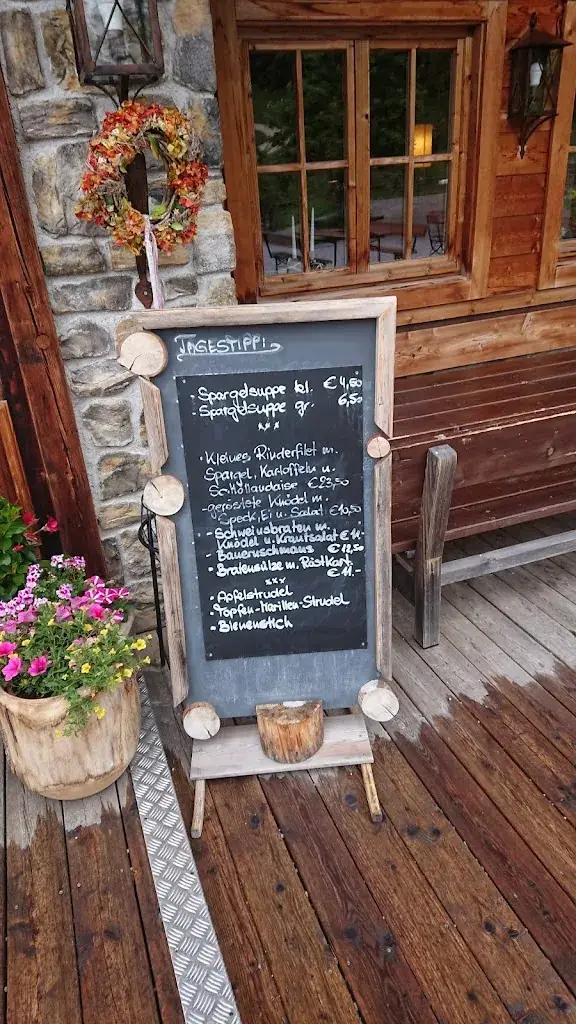 TAGESTIPP!
- Spargelsuppe kl. € 4,50
- Spargelsuppe gr. 6,50
xxx
• Kleines Rinderfilet m.
Spargel, Kartoffeln u.
Sc. Hollandaise €23,50
- geröstete Knödel m.
Speck, Ei u. Salat €10,50
- Schweinsbraten m.
Knödel u. Krautsalat €11.-
- Bauernschmaus € 12,50
- Bratensülze m. Röstkart.
€ 11.-
xxx
- Apfelstrudel
- Topfen-Marillen-Strudel
- Bienenstich